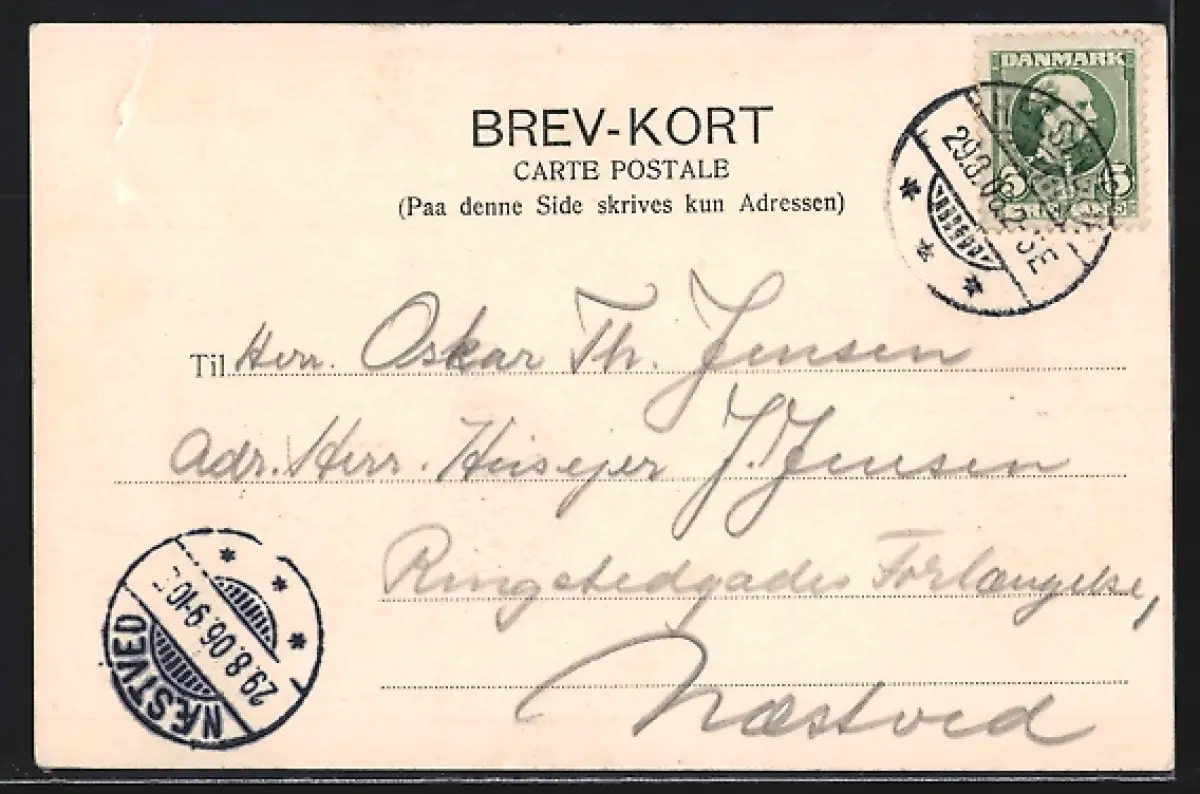 DANMARK
BREV-KORT
CARTE POSTALE
(Paa denne Side skrives kun Adressen)
29.8.06. 2-3E
5 5
Til Herr. Oskar Th. Jensen
Adr. Herr. Husejer J. Jensen
Ringstedgades Forlængelse,
Næstved
NÆSTVED
29.8.06. 9-10 E